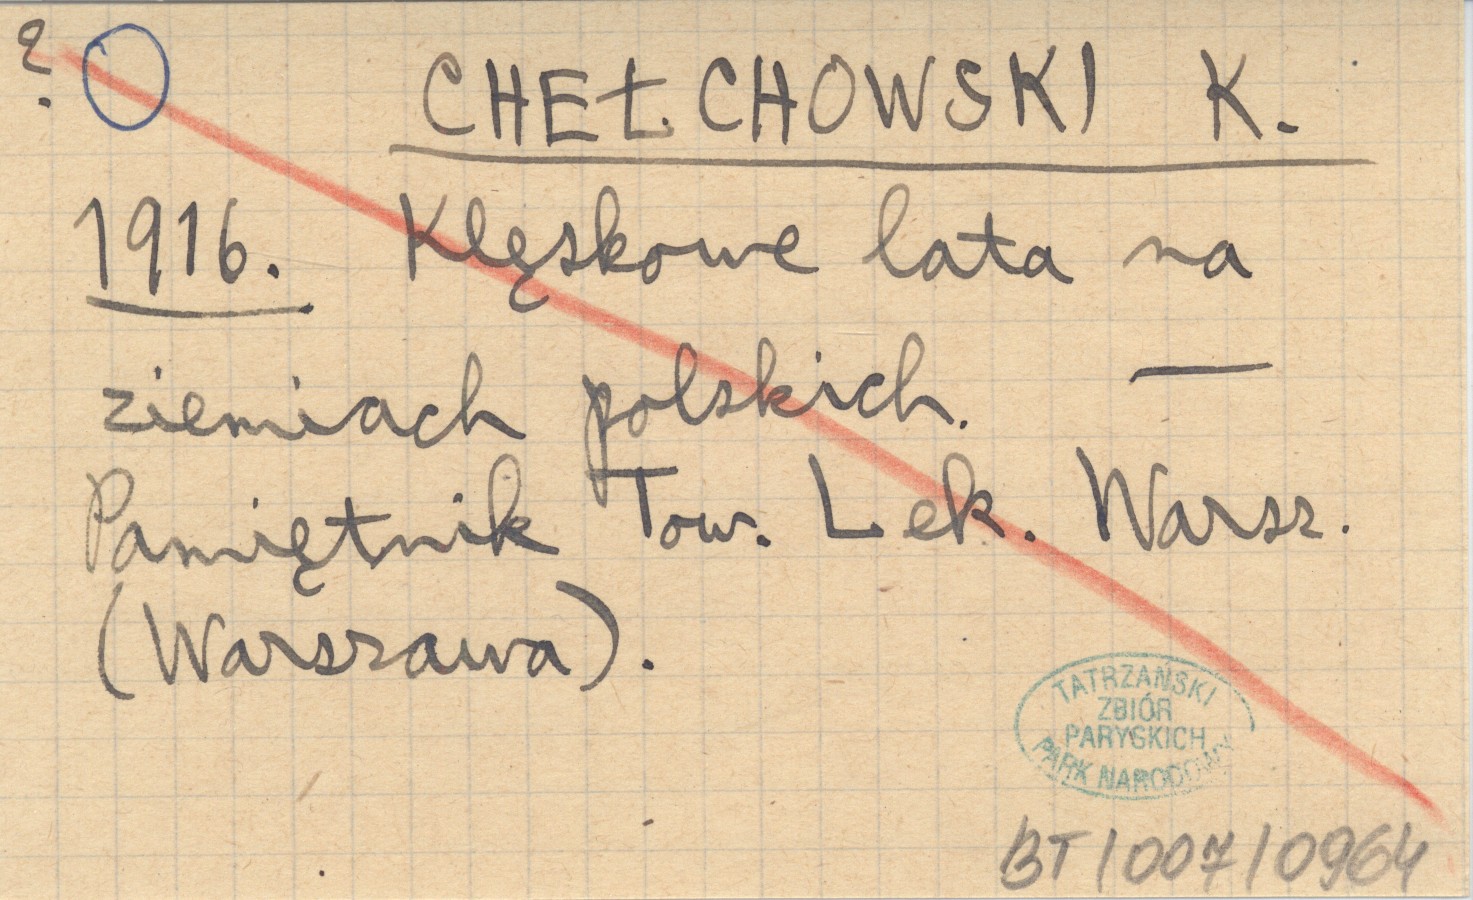 ?
CHEŁCHOWSKI K.
1916. Klęskowe lata na
ziemiach polskich. —
Pamiętnik Tow. Lek. Warsz.
(Warszawa).
TATRZAŃSKI
ZBIÓR
PARYSKICH
PARK NARODOWY
BT/007/0964